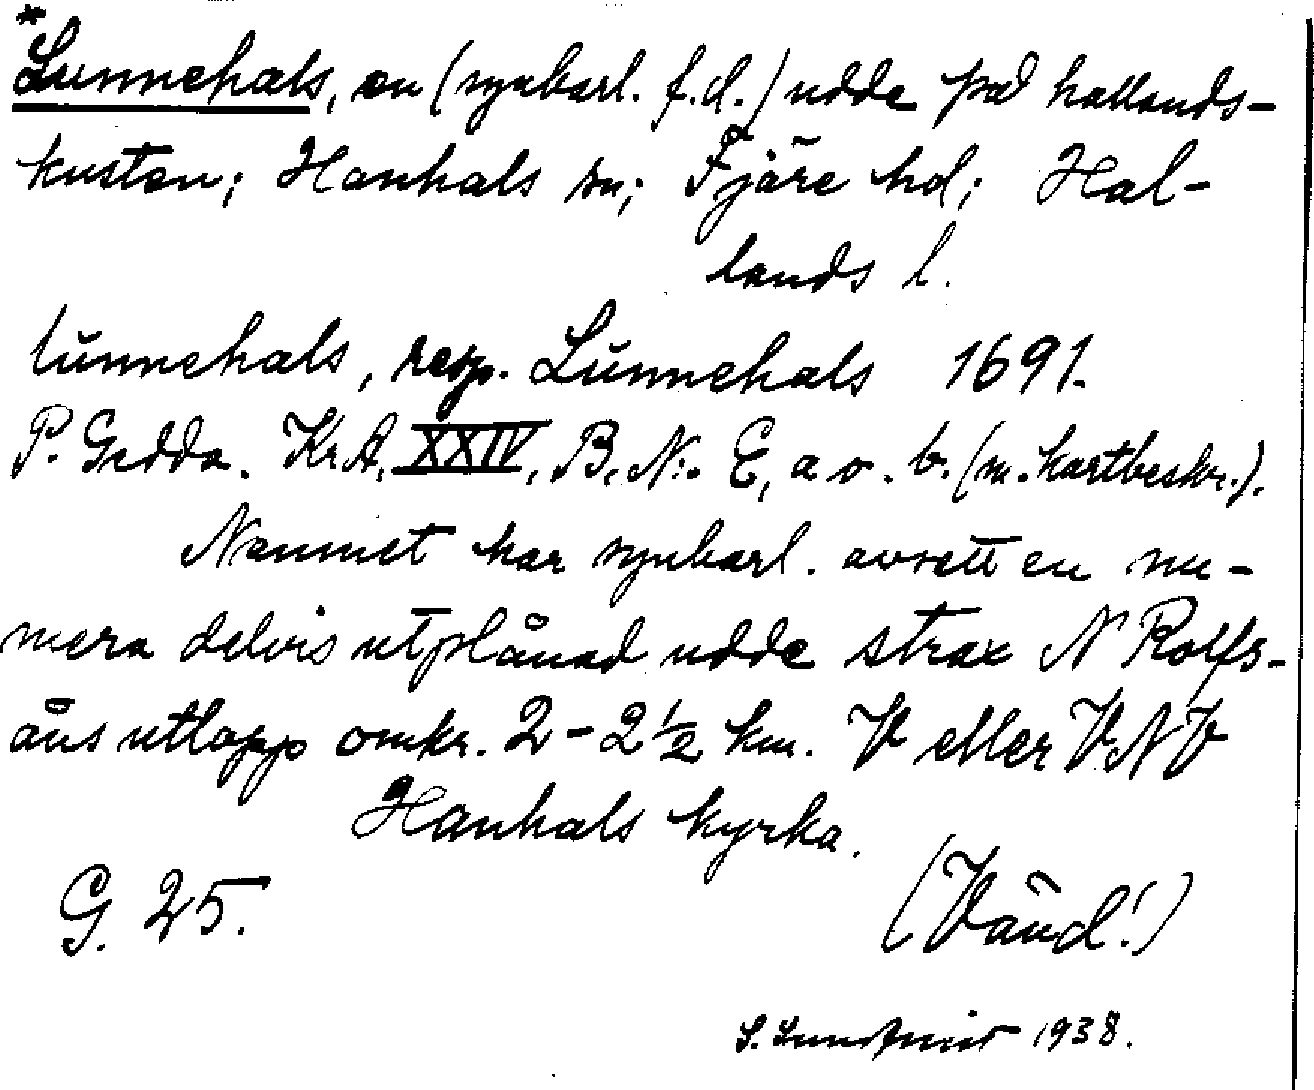 *Lunnehals, en (synbarl. f.d.) udde på hallands-
kusten; Hanhals sn; Fjäre hd; Hal-
lands l.
lŭnnehals, resp. Lŭnnehals 1691.
P. Gedda. KrA, XXIV, B. N:o E, a o. b. (m. kartbeskr.).
Namnet har synbarl. avsett en nu-
mera delvis utplånad udde strax N Rolfs-
åns utlopp omkr. 2-2½ km. V eller VNV
Hanhals kyrka.
G. 25. (Vänd!)
S. Lundqvist 1938.